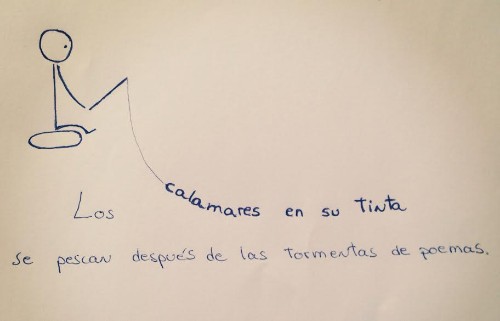 Los calamares en su tinta
se pescan después de las tormentas de poemas.